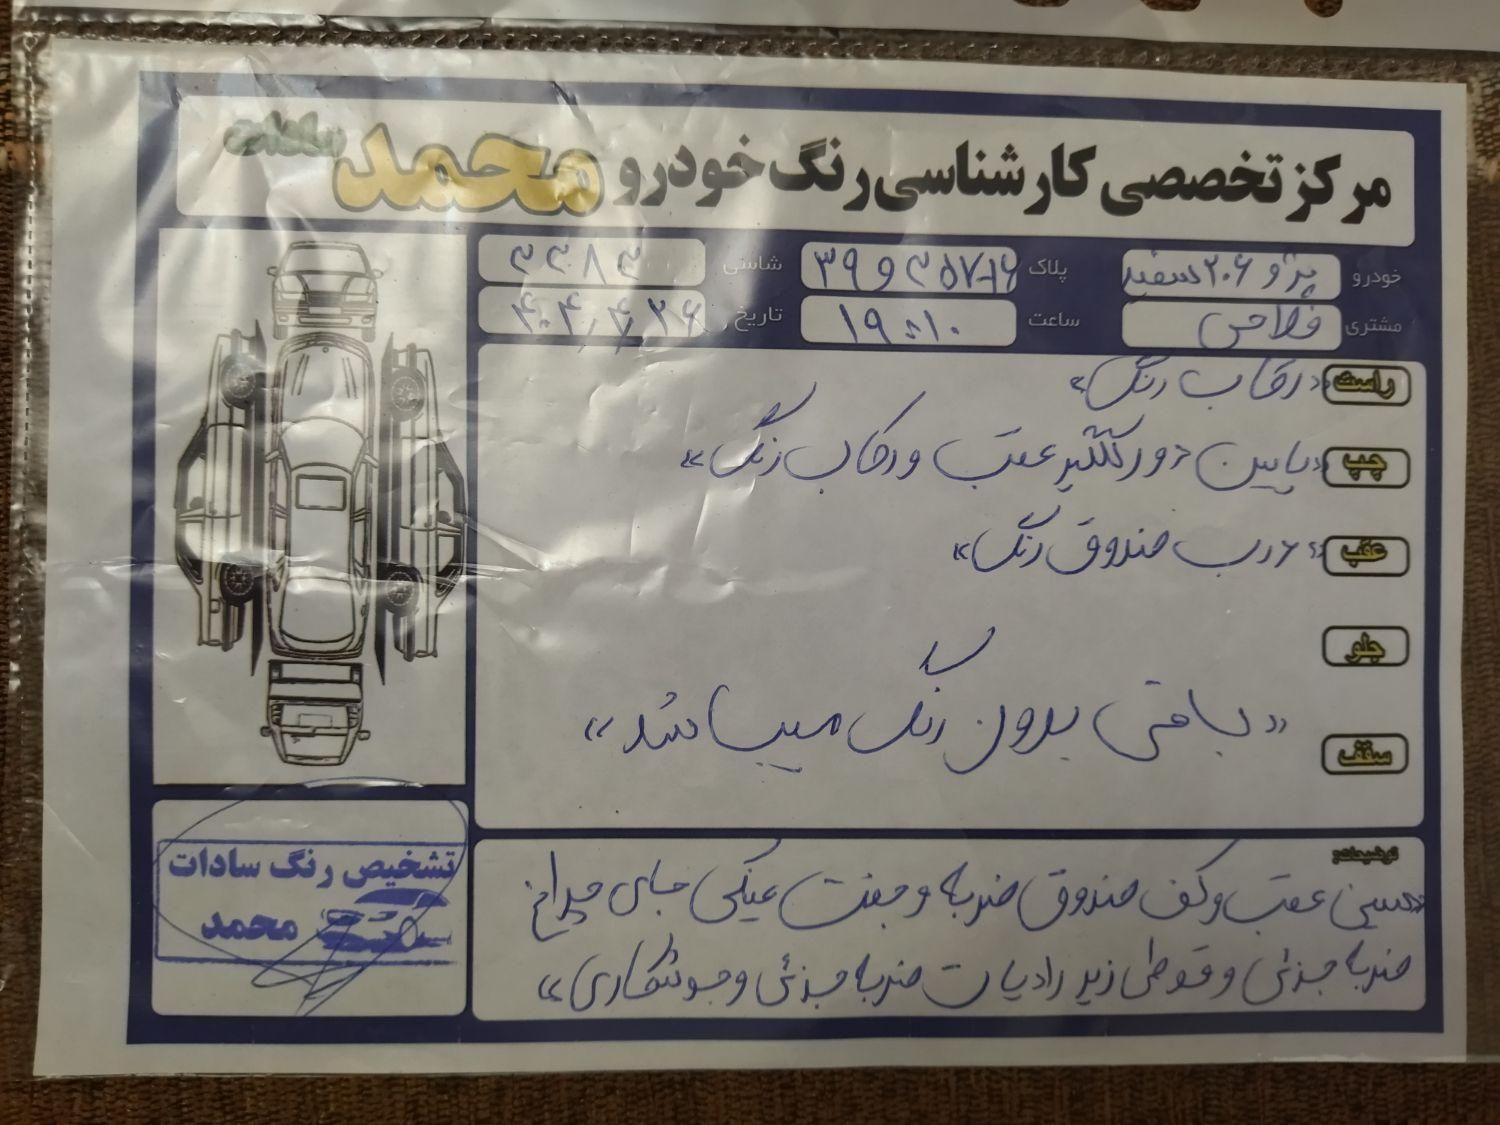 مرکز تخصصی کارشناسی رنگ خودرو محمد سادات
خودرو پژو ۲۰۶ سفید
پلاک
شاسی
مشتری فلاحی
ساعت ۱۹:۱۰
تاریخ ۴۰۴/۴/۲۶
راست «رکاب رنگ»
چپ «پایین دور گلگیر عقب و رکاب رنگ»
عقب «درب صندوق رنگ»
جلو
«باقی بدون رنگ میباشد»
سقف
توضیحات:
«سینی عقب و کف صندوق ضربه و جفت عینکی جای چراغ
ضربه جزئی و قوطی زیر رادیات ضربه جزئی و جوشکاری»
تشخیص رنگ سادات
محمد